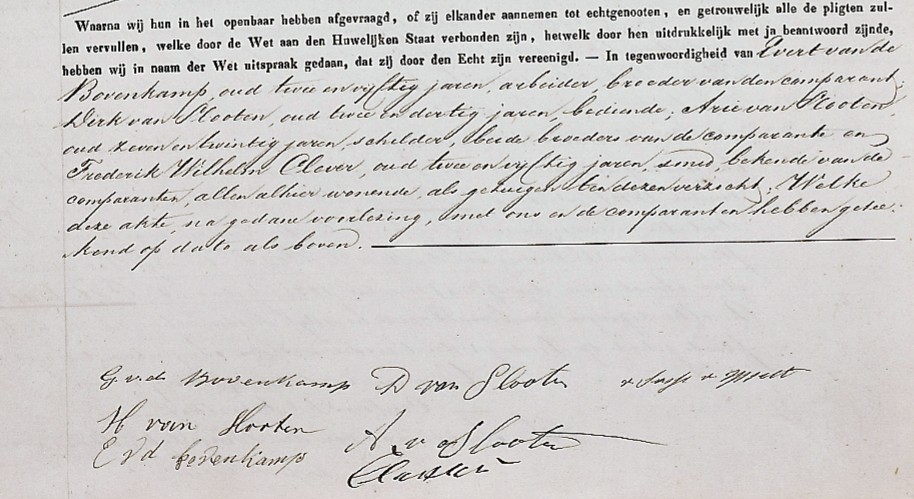 Waarna wij hun in het openbaar hebben afgevraagd, of zij elkander aannemen tot echtgenooten, en getrouwelijk alle de pligten zul-
len vervullen, welke door de Wet aan den Huwelijken Staat verbonden zijn, hetwelk door hen uitdrukkelijk met ja beantwoord zijnde,
hebben wij in naam der Wet uitspraak gedaan, dat zij door den Echt zijn vereenigd. — In tegenwoordigheid van Evert van de
Bovenkamp, oud twee en vijftig jaren, arbeider, broeder van den comparant;
Dirk van Slooten, oud twee en dertig jaren, bediende; Arie van Slooten,
oud zeven en twintig jaren, schilder, beide broeders van de comparante en
Frederik Wilhelm Clever, oud twee en vijftig jaren, smid, bekende van de
comparanten, allen alhier wonende, als getuigen ten dezen verzocht; Welke
deze akte, na gedane voorlezing, met ons en de comparanten hebben getee-
kend op dato als boven.
G vd Bovenkamp D van Slooten
H van Slooten
A v Slooten
E vd bovenkamp